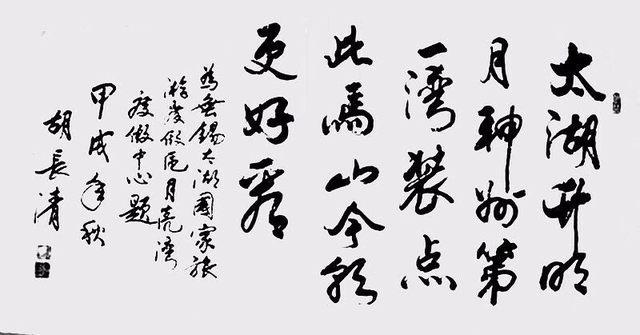 太湖升明
月神州第
一湾装点
此馬山今朝
更好看
為無錫太湖國家旅
游度假区月亮湾
度假中心題
甲戌年秋
胡長清